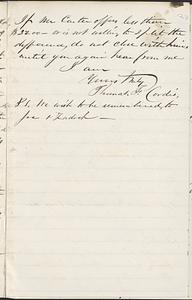 If Mr Carter offers less than
$3200 – or is not willing to split the
difference, do not close with him
until you again hear from me
I am
Yours truly
Thomas F. Cordis
P.S. We wish to be remembered to
you &